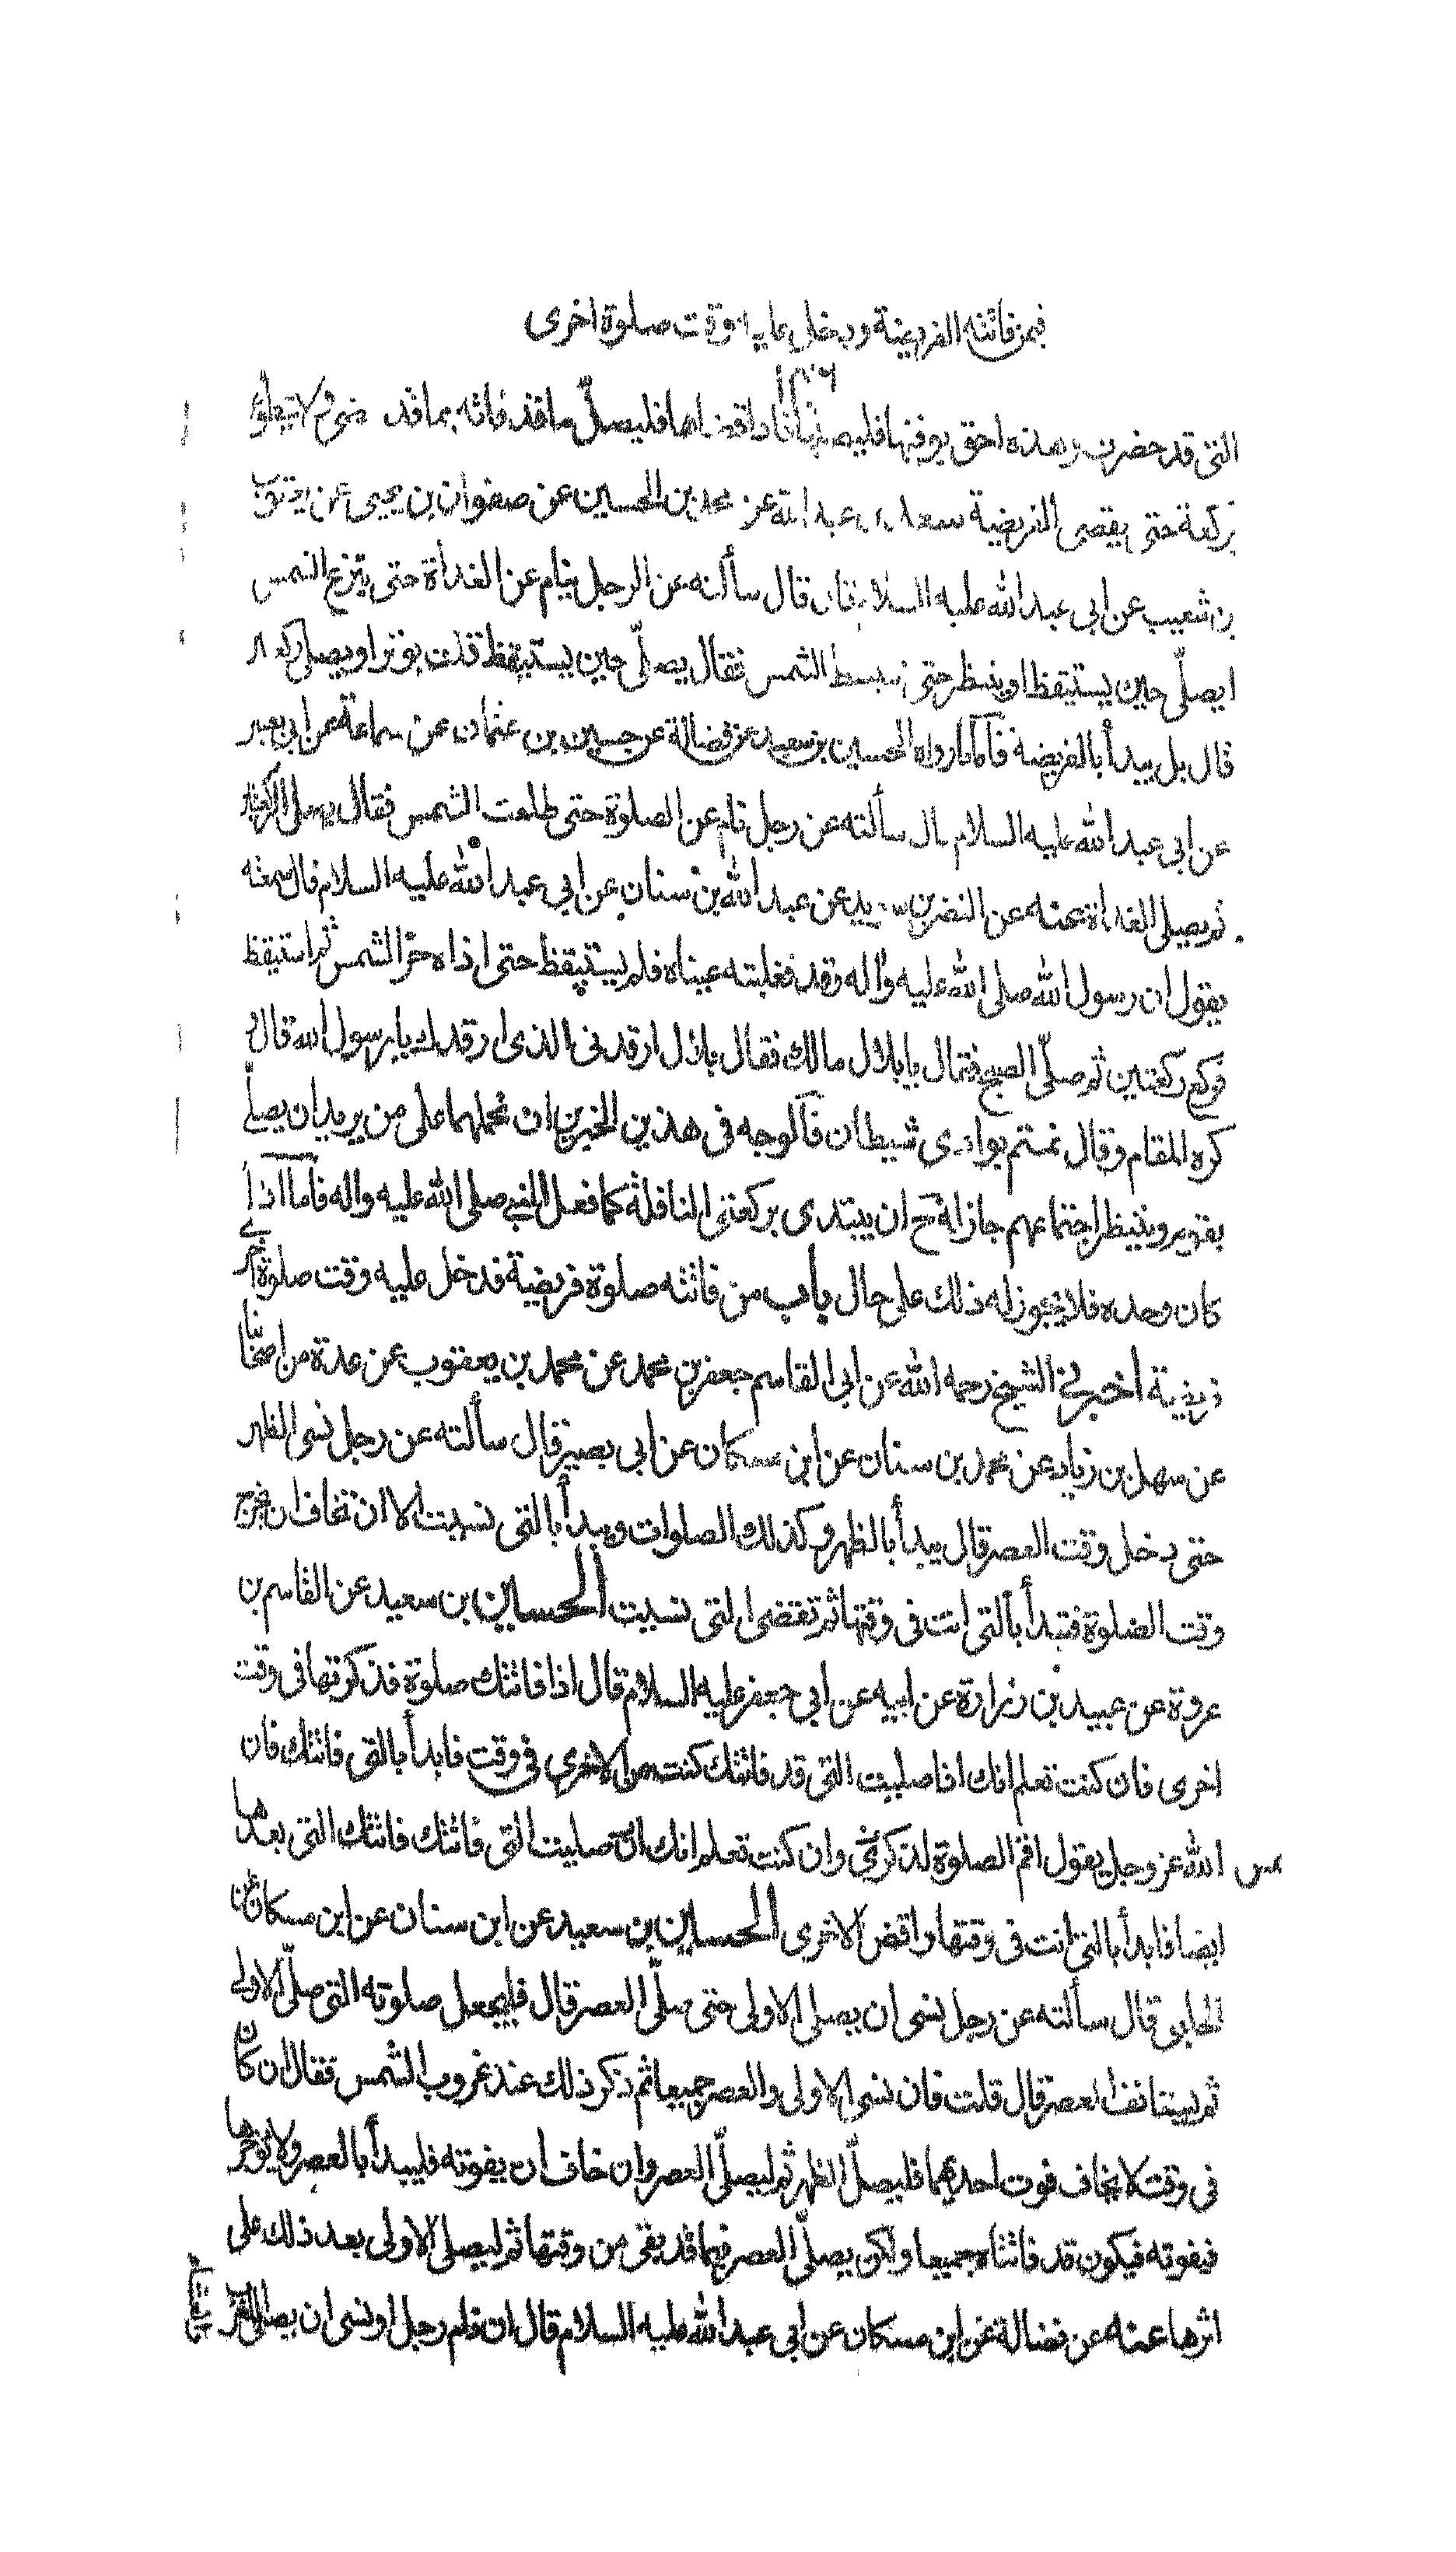 فيمن فاتته الفريضة ودخل عليه وقت صلوة اخرى
التى قد حضرت وهذه احق بوقتها فليصلها فاذا قضاها فليصلّ ما قد فاته مما قد مضى ولا يتطوع
بركعة حتى يقضى الفريضة سعد بن عبد الله عن محمد بن الحسين عن صفوان بن يحيى عن يعقوب
بن شعيب عن ابى عبد الله عليه السلام قال قال سألته عن الرجل ينام عن الغداة حتى يبزغ الشمس
ايصلّى حين يستيقظ او ينتظر حتى تنبسط الشمس فقال يصلّى حين يستيقظ قلت يوتر او يصلى الركعتين
قال بل يبدأ بالفريضة فاما ما رواه الحسين بن سعيد عن فضالة عن حسين بن عثمان عن سماعة عن ابى بصير
عن ابى عبد الله عليه السلام قال سألته عن رجل نام عن الصلوة حتى طلعت الشمس فقال يصلى الركعتين
ثم يصلى الغداة عنه عن النضر بن سويد عن عبد الله بن سنان عن ابى عبد الله عليه السلام قال سمعته
يقول ان رسول الله صلى الله عليه واله رقد فغلبته عيناه فلم يستيقظ حتى اذاه حرّ الشمس ثم استيقظ
فركع ركعتين ثم صلّى الصبح فقال يا بلال مالك فقال بلال ارقدنى الذى ارقدك يا رسول الله قال و
كره المقام وقال نمتم بوادى شيطان فالوجه فى هذين الخبرين ان نحملهما على من يريد ان يصلى
بقوم وينتظر اجتماعهم جاز له ح ان يبتدى بركعتى النافلة كما فعل النبى صلى الله عليه واله فاما اذا
كان وحده فلا يجوز له ذلك على حال باب من فاتته صلوة فريضة فدخل عليه وقت صلوة اخرى
فريضة أخبرنى الشيخ رحمه الله عن ابى القاسم جعفر بن محمد عن محمد بن يعقوب عن عدة من اصحابنا
عن سهل بن زياد عن محمد بن سنان عن ابن مسكان عن ابى بصير قال سألته عن رجل نسى الظهر
حتى دخل وقت العصر قال يبدأ بالظهر وكذلك الصلوات ويبدأ بالتى نسيت الا ان تخاف ان يخرج
وقت الصلوة فتبدأ بالتى انت فى وقتها ثم تقضى التى نسيت الحسين بن سعيد عن القاسم بن
عروة عن عبيد بن زرارة عن ابيه عن ابى جعفر عليه السلام قال اذا فاتتك صلوة فذكرتها فى وقت
اخرى فان كنت تعلم انك اذا صليت التى قد فاتتك كنت من الاخرى فى وقت فابدأ بالتى فاتتك فان
الله عز وجل يقول اقم الصلوة لذكرى وان كنت تعلم انك اذا صليت التى فاتتك فاتتك التى بعدها
ايضا فابدأ بالتى انت فى وقتها واقض الاخرى الحسين بن سعيد عن ابن سنان عن ابن مسكان عن
الحلبى قال سألته عن رجل نسى ان يصلى الاولى حتى صلّى العصر قال فليجعل صلوته التى صلّى الاولى
ثم يستانف العصر قال قلت فان نسى الاولى والعصر جميعا ثم ذكر ذلك عند غروب الشمس فقال ان كان
فى وقت لا يخاف فوت احديهما فليصلّ الظهر ثم ليصلّى العصر وان خاف ان يفوته فليبدأ بالعصر ولا يؤخرها
فيفوته فيكون قد فاتتاه جميعا ولكن يصلّى العصر فيما قد بقى من وقتها ثم ليصلى الاولى بعد ذلك على
اثرها عنه عن فضالة عن ابن مسكان عن ابى عبد الله عليه السلام قال ان نام رجل او نسى ان يصلى المغرب